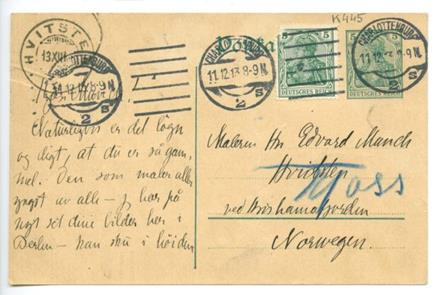 K445
HVITSTEN
13 XII
Postkarte
CHARLOTTENBURG
11.12.13. 8-9 N.
2
s
CHARLOTTENBURG
11.12.13. 8-9 N.
2
s
CHARLOTTENBURG
11.12.13. 8-9 N.
2
s
5
5
DEUTSCHES REICH
5
5
DEUTSCHES REICH
Naturligvis er det løgn
og digt, at du er så gam-
mel. Den som maler aller
yngst av alle – Jeg har på
nyt set dine bilder her i
Berlin –
Maleren Hr. Edvard Munch
Hvitsten
Moss
ved Kristianiafjorden
Norwegen.